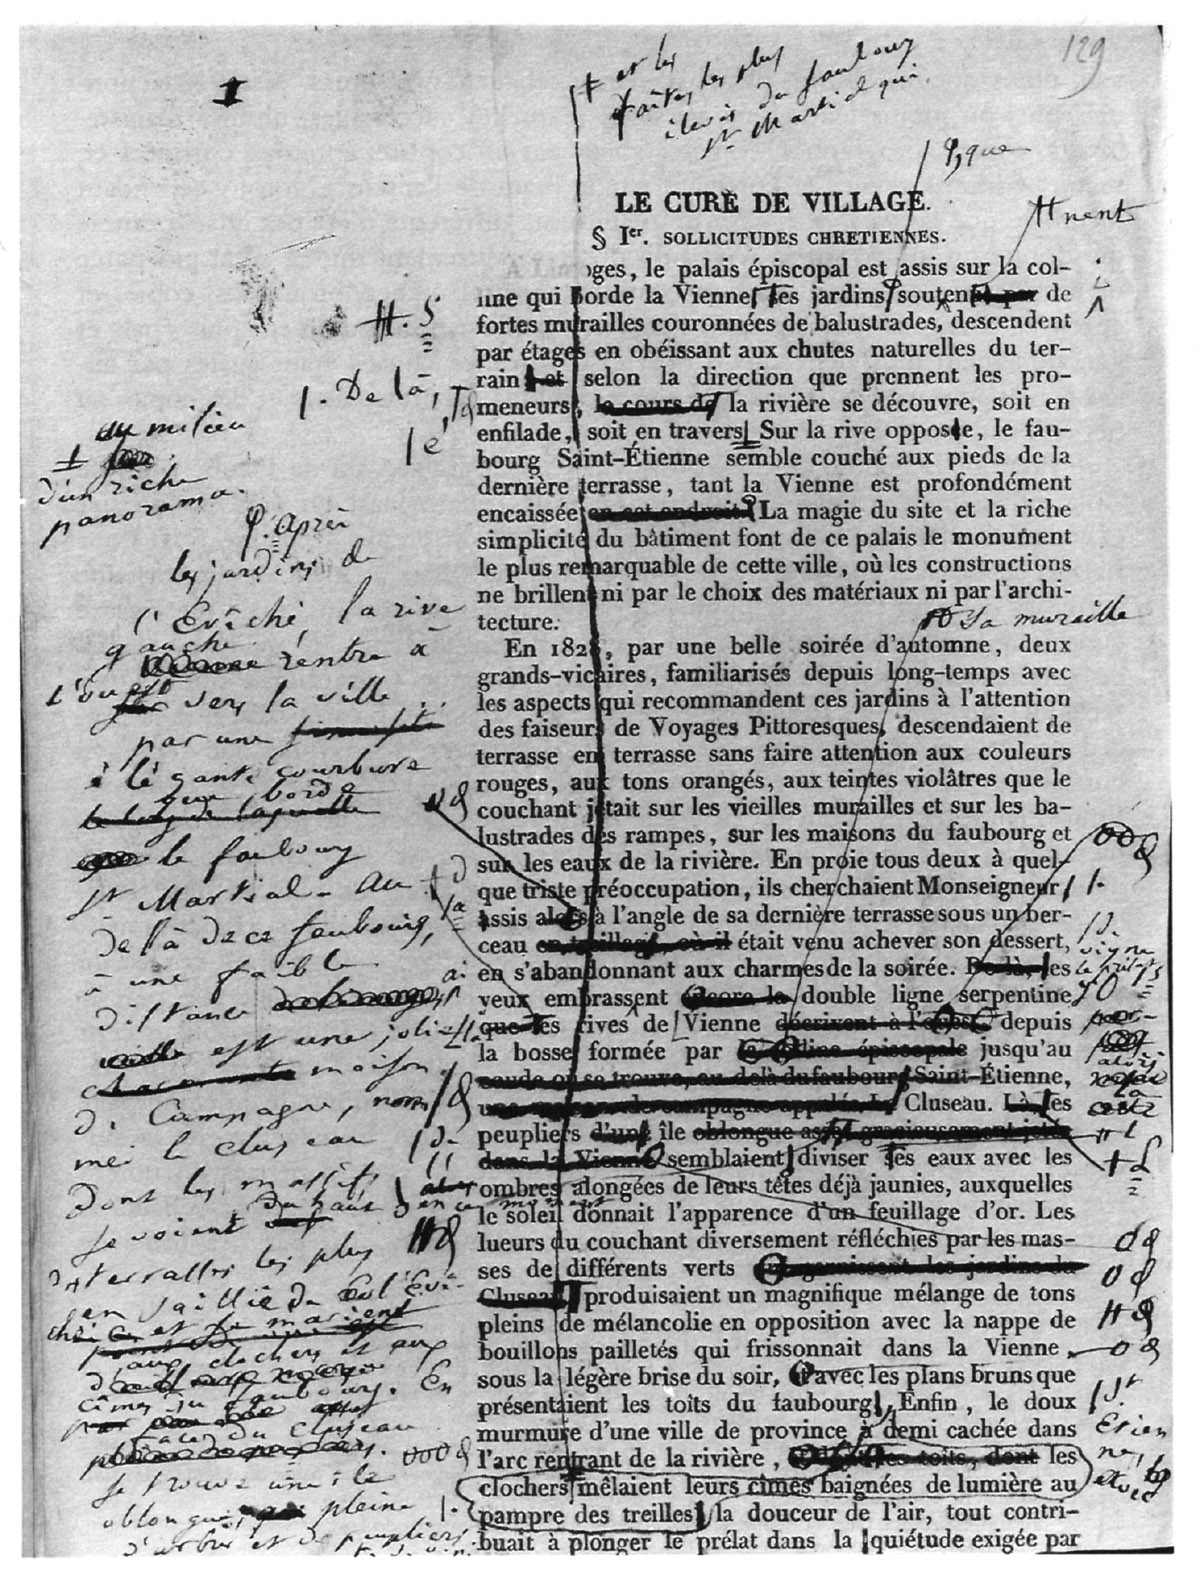 129
+ et les
faîtes les plus
élevés du faubourg
St Martial qui
que
nent
LE CURÉ DE VILLAGE.
§ Ier. SOLLICITUDES CHRETIENNES.
oges, le palais épiscopal est assis sur la col-
line qui borde la Vienne, ses jardins, souten de
fortes murailles couronnées de balustrades, descendent
par étages en obéissant aux chutes naturelles du ter-
rain et selon la direction que prennent les pro-
meneurs, le cours de la rivière se découvre, soit en
enfilade, soit en travers. Sur la rive opposée, le fau-
bourg Saint-Étienne semble couché aux pieds de la
dernière terrasse, tant la Vienne est profondément
encaissée en cet endroit. La magie du site et la riche
simplicité du bâtiment font de ce palais le monument
le plus remarquable de cette ville, où les constructions
ne brillent ni par le choix des matériaux ni par l'archi-
tecture.
En 1828, par une belle soirée d'automne, deux
grands-vicaires, familiarisés depuis long-temps avec
les aspects qui recommandent ces jardins à l'attention
des faiseurs de Voyages Pittoresques, descendaient de
terrasse en terrasse sans faire attention aux couleurs
rouges, aux tons orangés, aux teintes violâtres que le
couchant jetait sur les vieilles murailles et sur les ba-
lustrades des rampes, sur les maisons du faubourg et
sur les eaux de la rivière. En proie tous deux à quel-
que triste préoccupation, ils cherchaient Monseigneur
assis alors à l'angle de sa dernière terrasse sous un ber-
ceau en treillage, où il était venu achever son dessert,
en s'abandonnant aux charmes de la soirée. De là, les
yeux embrassent encore la double ligne serpentine
que les rives de Vienne décrivent à l'ouest depuis
la bosse formée par la colline épiscopale jusqu'au
coude où se trouve, au delà du faubourg Saint-Étienne,
une maison de campagne appelée Le Cluseau. Là, les
peupliers d'une île oblongue assez gracieusement jetée
dans la Vienne semblaient diviser ses eaux avec les
ombres alongées de leurs têtes déjà jaunies, auxquelles
le soleil donnait l'apparence d'un feuillage d'or. Les
lueurs du couchant diversement réfléchies par les mas-
ses de différents verts les jardins du
Cluseau produisaient un magnifique mélange de tons
pleins de mélancolie en opposition avec la nappe de
bouillons pailletés qui frissonnait dans la Vienne
sous la légère brise du soir, avec les plans bruns que
présentaient les toits du faubourg. Enfin, le doux
murmure d'une ville de province à demi cachée dans
l'arc rentrant de la rivière, toits, dont les
clochers mêlaient leurs cîmes baignées de lumière au
pampre des treilles, la douceur de l'air, tout contri-
buait à plonger le prélat dans la quiétude exigée par
De là,
au milieu
d'un riche
panorama.
après
les jardins de
l'Évêché, la rive
gauche rentre à
l'ouest vers la ville
par une
élégante courbure
que borde
le faubourg
St Martial. Au
delà de ce faubourg,
à une faible
distance
est une jolie
maison
de Campagne, nom
mée le cluseau
dont les massifs
se voient du haut
en ce moment
intervalles les plus
en saillie de l'Évê-
ché
aux clochers et aux
cîmes du faubourg. En
face du cluseau
se trouve une île
oblongue, pleine
d'arbres et de peupliers
sa muraille
vigne
le prélat
St
Etien
ne,